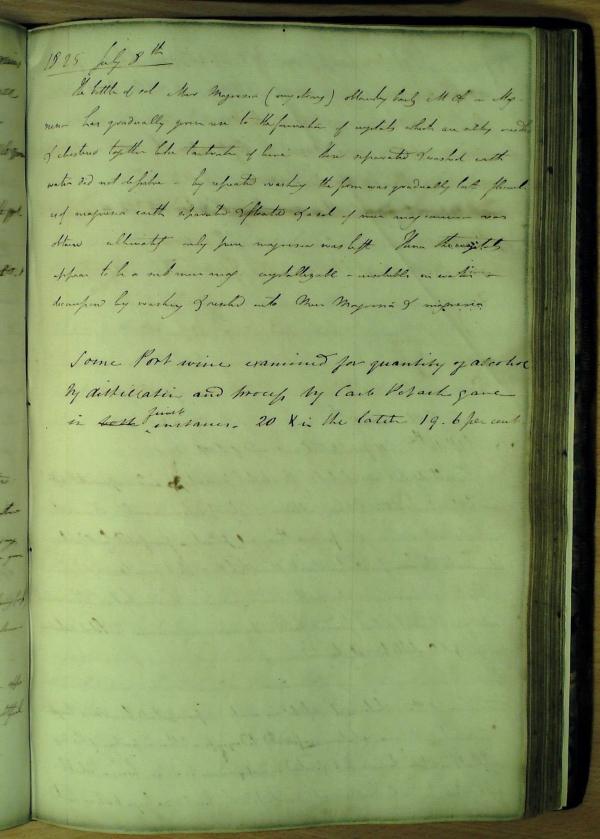 1825 July 8th
The bottle of sol Mur Magnesia (very strong) standing
has gradually given rise to the formation of crystals which are
& clustered together like tartrate of lime these separated & washed with
water did not dissolve - by repeated washing the form was gradually lost
of magnesia earth separated & floated & a sol of mur magnesia was
obtained ultimately only pure magnesia was left Hence the crystals
appear to be a sub mur mag crystallizable - insoluble in water -
decomposed by washing & resolved into Mur Magnesia & magnesia
Some Port wine examined for quantity of alcohol
by distillation and process by Carb Potash gave
in both first instance. 20 & in the latter 19.6 per cent